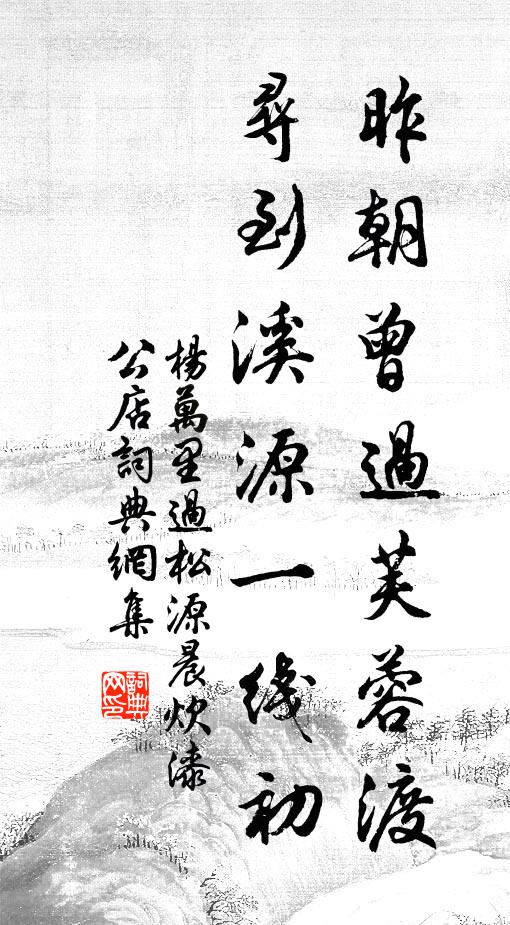 昨朝曾過芙蓉渡
尋到溪源一线初
楊萬里過松源晨炊漆
公店詞典網集
詞典網印